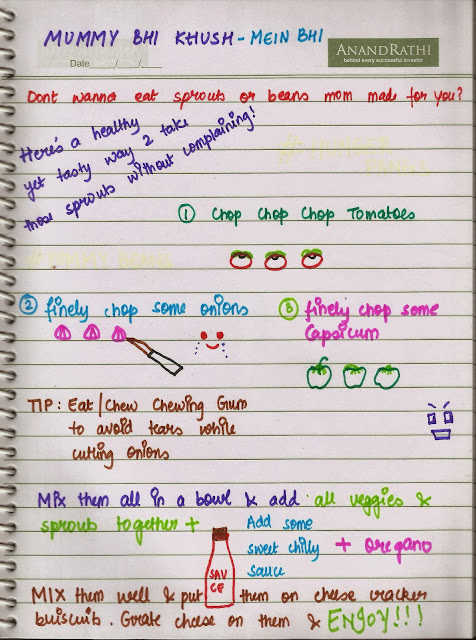 MUMMY BHI KHUSH - MEIN BHI
ANANDRATHI
behind every successful investor
Date / /
Dont wanna eat sprouts or beans mom made for you?
Here's a healthy
yet tasty way 2 take
those sprouts without complaining!
① Chop Chop Chop Tomatoes
② finely chop some onions
③ finely chop some
Capsicum
TIP: Eat/Chew Chewing Gum
to avoid tears while
cutting onions
Mix them all in a bowl & add all veggies &
sprouts together +
Add some
sweet chilly
sauce
+ oregano
SAU
CE
MIX them well & put them on cheese cracker
buiscuits. Grate cheese on them & ENJOY!!!